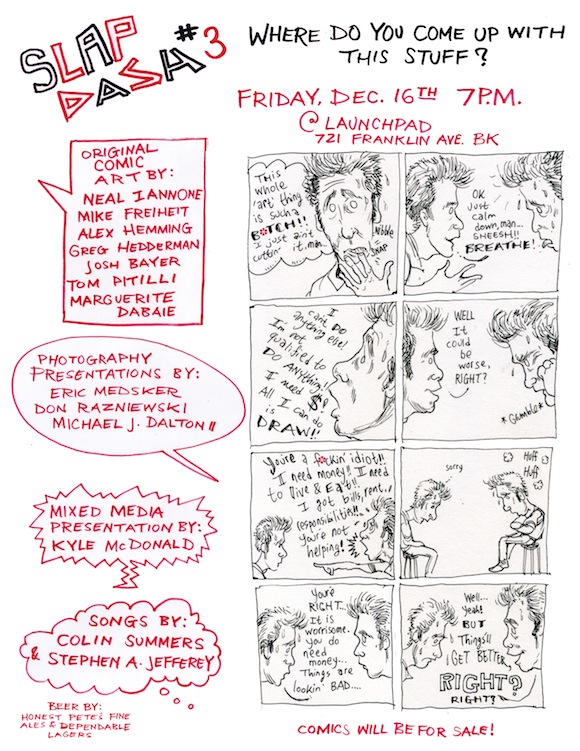 SLAP
DASH
#3
WHERE DO YOU COME UP WITH
THIS STUFF?
FRIDAY, DEC. 16TH 7P.M.
@ LAUNCHPAD
721 FRANKLIN AVE. BK
ORIGINAL
COMIC
ART BY:
NEAL IANNONE
MIKE FREIHEIT
ALEX HEMMING
GREG HEDDERMAN
JOSH BAYER
TOM PITILLI
MARGUERITE
DABAIE
PHOTOGRAPHY
PRESENTATIONS BY:
ERIC MEDSKER
DON RAZNIEWSKI
MICHAEL J. DALTON II
MIXED MEDIA
PRESENTATION BY:
KYLE McDONALD
SONGS BY:
COLIN SUMMERS
& STEPHEN A. JEFFEREY
BEER BY:
HONEST PETE'S FINE
ALES & DEPENDABLE
LAGERS
This
whole
'art' thing
is such a
B*TCH!!
I just ain't
cuttin' it, man.
Nibble
SNAP
OK
Just
calm
down, man...
SHEESH!!
BREATHE!
I
can't DO
anything else!
I'm not
qualified to
DO ANYthing!
I need $$!
All I can do
is
DRAW!!
WELL
It
could
be
worse,
RIGHT?
*Grumble*
You're a f*ckin' idiot!!
I need money!! I need
to live & Eat!!
I got bills, rent..
responsibilities!!
you're not
helping!
sorry
Huff
Huff
You're
RIGHT...
It is
worrisome.
you do
need
money...
Things are
lookin' BAD....
Well...
Yeah!
BUT
Things'll
GET BETTER
RIGHT?
RIGHT?
COMICS WILL BE FOR SALE!